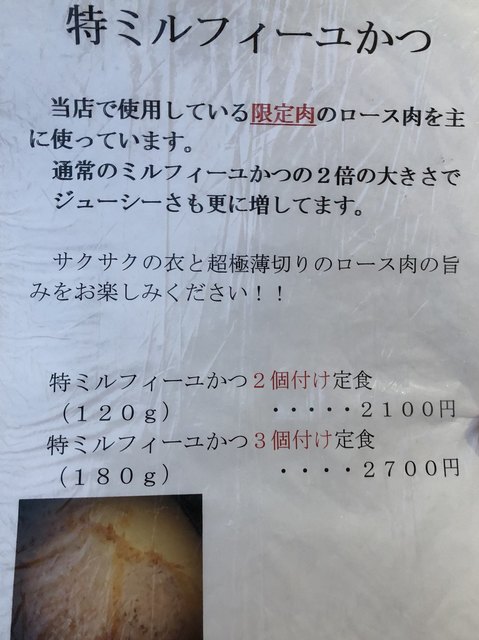 特ミルフィーユかつ
当店で使用している限定肉のロース肉を主
に使っています。
通常のミルフィーユかつの２倍の大きさで
ジューシーさも更に増してます。
サクサクの衣と超極薄切りのロース肉の旨
みをお楽しみください！！
特ミルフィーユかつ２個付け定食
（１２０ｇ） ・・・・・２１００円
特ミルフィーユかつ３個付け定食
（１８０ｇ） ・・・・２７００円